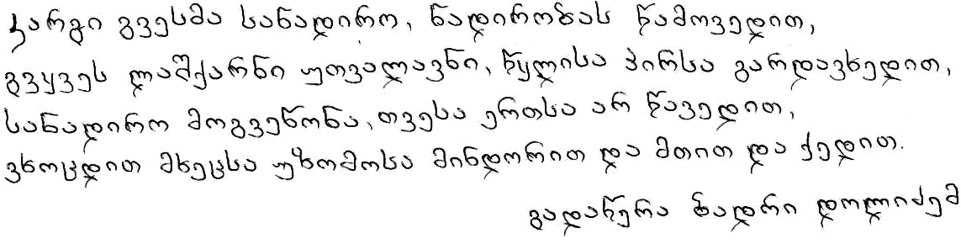 კარგი გვესმა სანადირო, ნადირობას წამოვედით,
გვყვეს ლაშქარნი უთვალავნი, წყლისა პირსა გარდავხედით,
სანადირო მოგვეწონა, თვესა ერთსა არ წავედით,
ვხოცდით მხეცსა უზომოსა მინდორით და მთით და ქედით.
გადაწერა ბადრი დოლიძემ